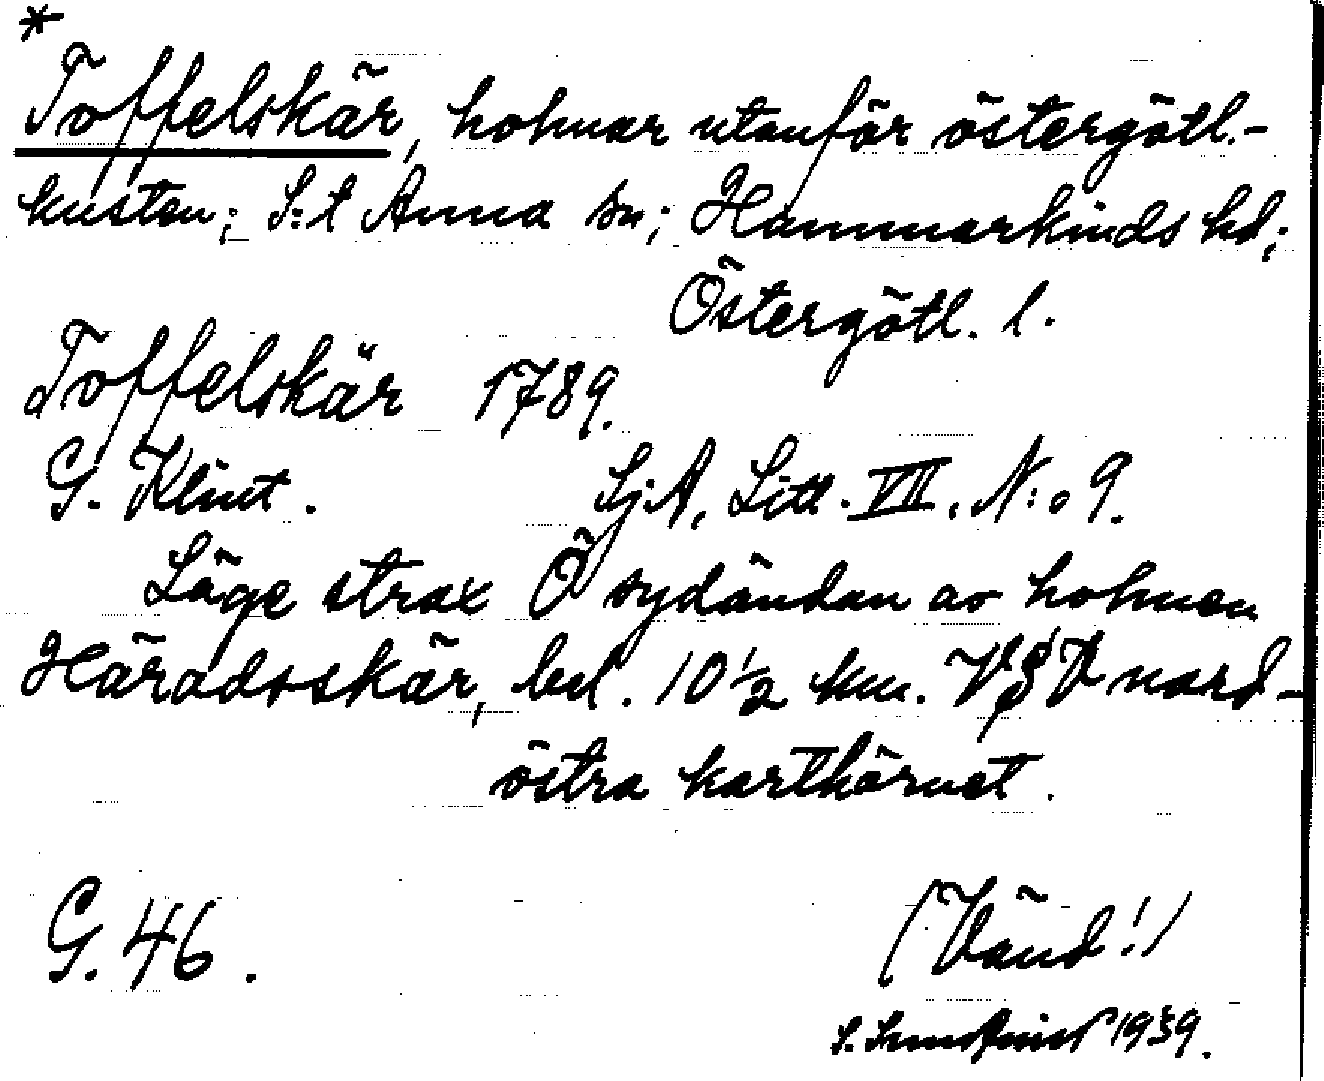 *
Toffelskär, holmar utanför östergötl.-
kusten; S:t Anna sn; Hammarkinds hd;
Östergötl. l.
Toffelskär 1789.
G. Klint. Sj.A, Litt. VII, N:o 9.
Läge strax Ö sydändan av holmen
Häradsskär, bel. 10 1/2 km. VSV nord-
östra karthörnet.
G. 46. (Vänd!)
S. Sundqvist 1939.